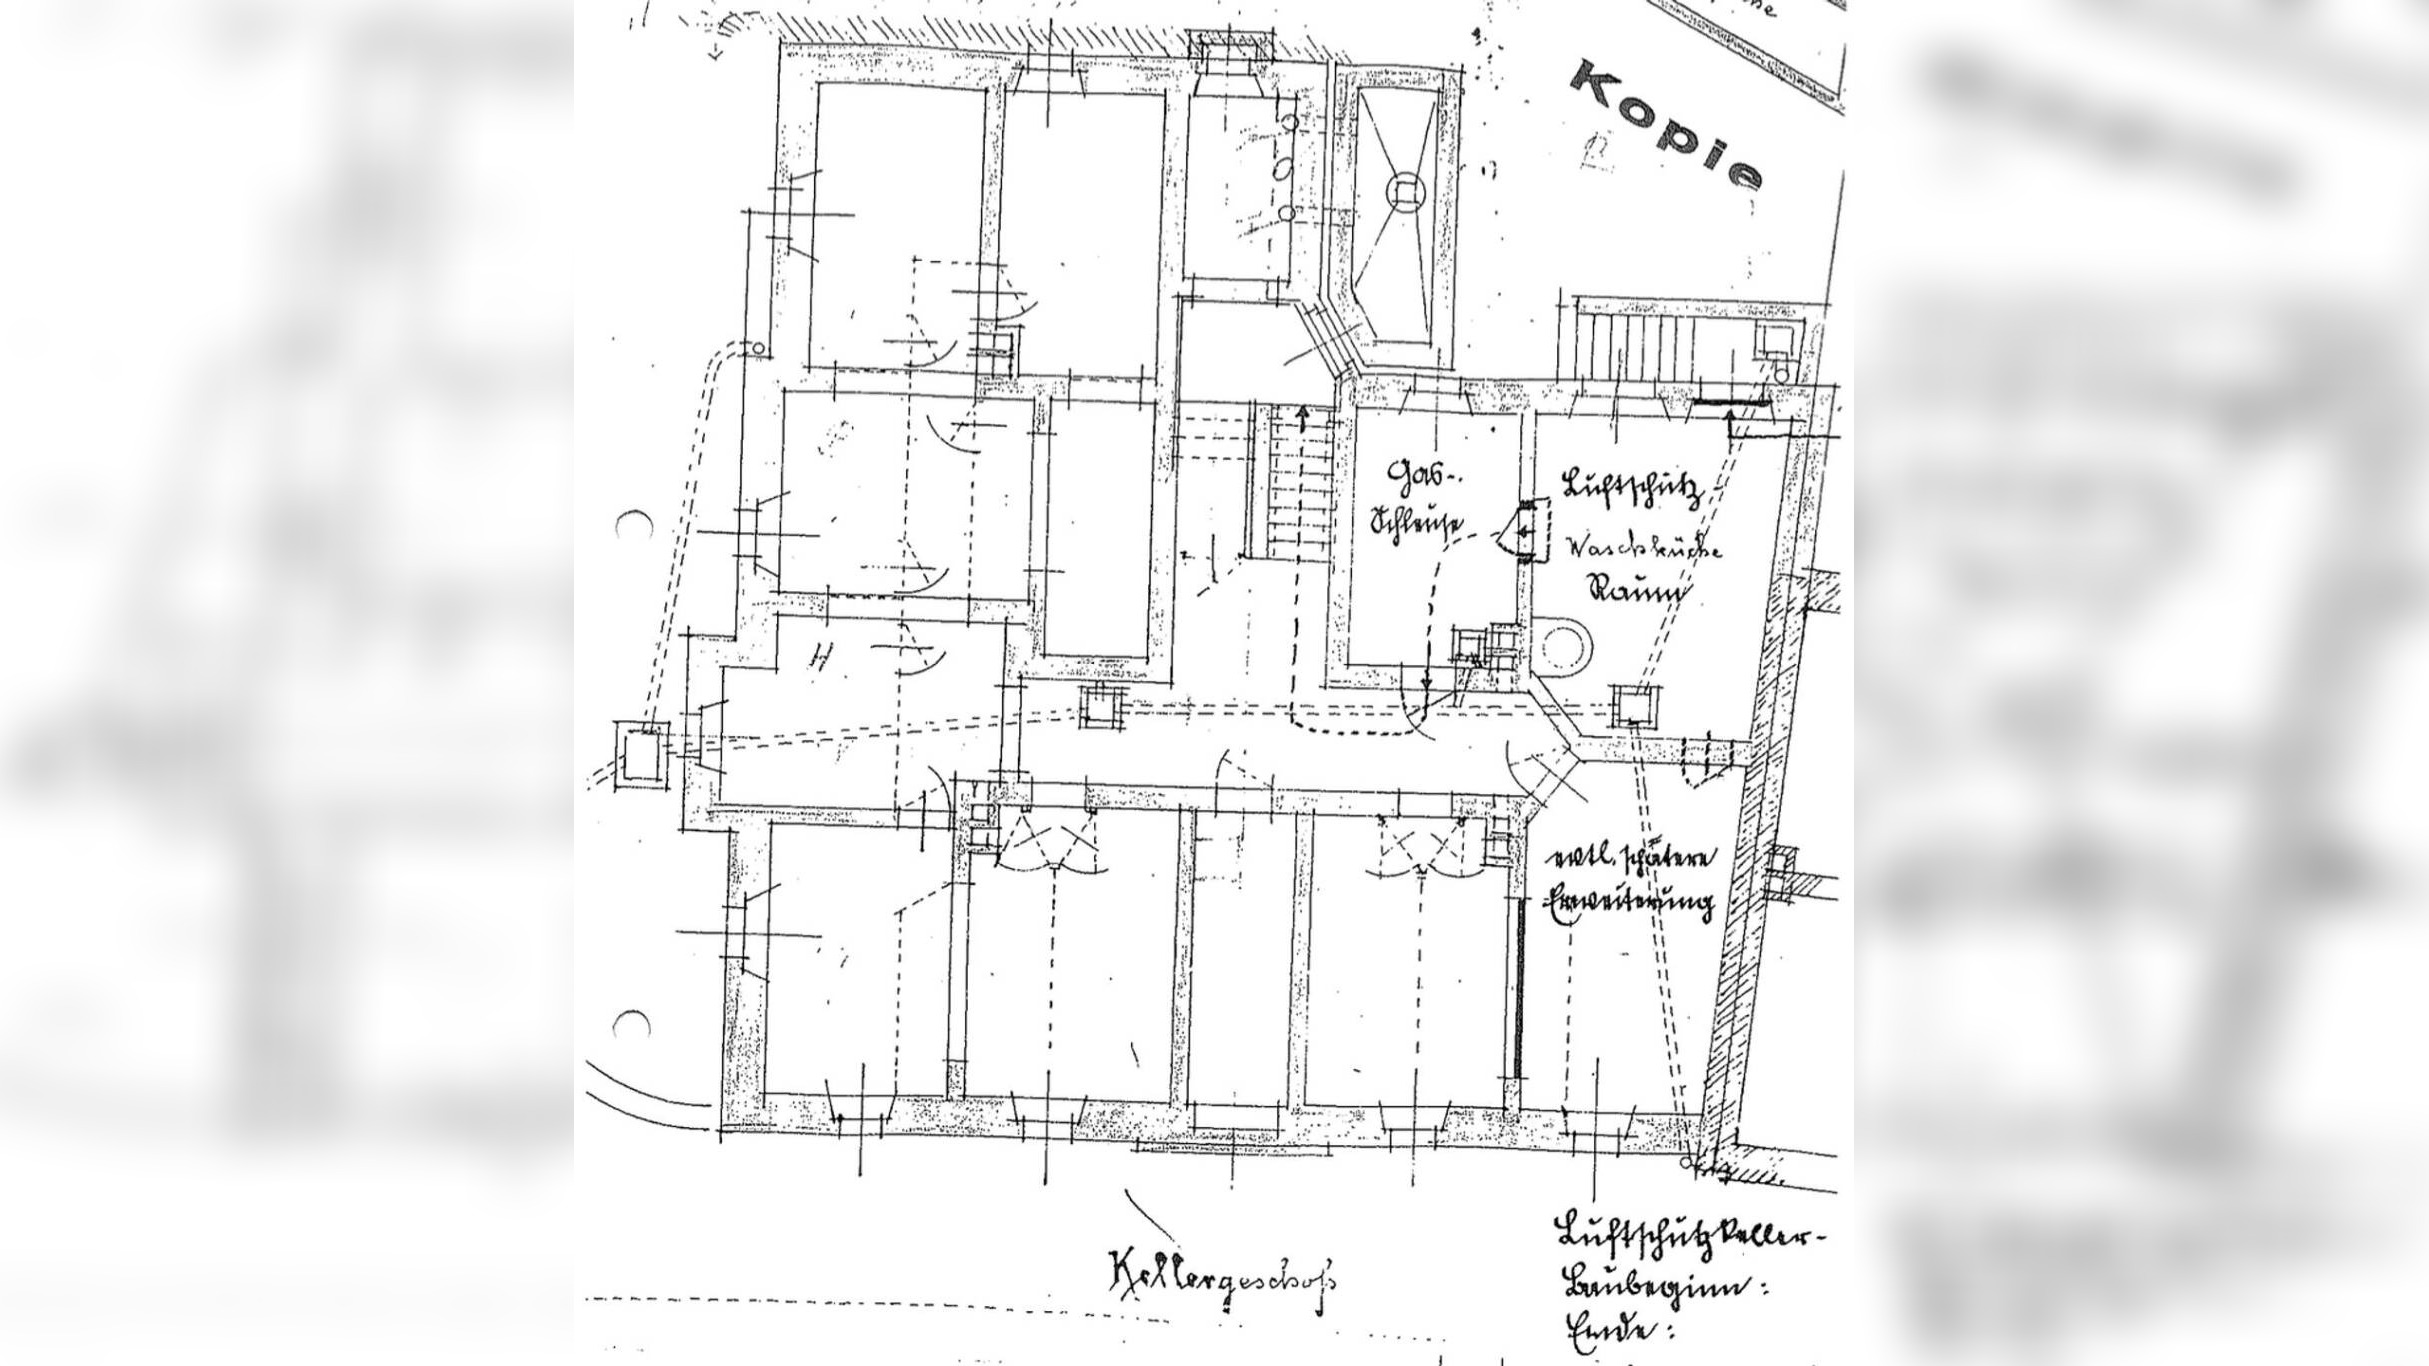 Kopie
Gas-
Schleuse
Luftschutz-
Waschküche
Raum
H
evtl. spätere
Erweiterung
Kellergeschoß
Luftschutzkeller-
Baubeginn:
Ende: